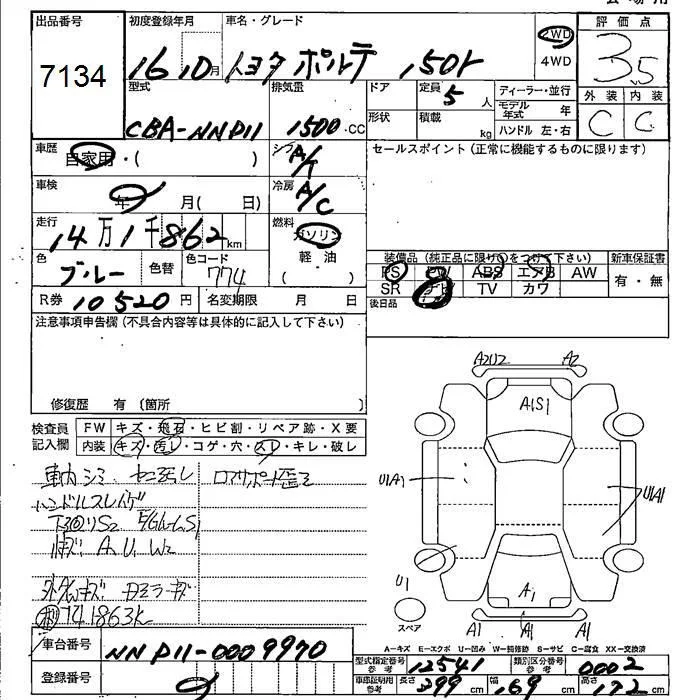 出品番号
7134
初度登録年月
16 10 月
車名・グレード
トヨタ ポルテ 150r
2WD
4WD
評価点
3.5
外装 内装
C C
型式
CBA-NNP11
排気量
1500 CC
ドア
形状
定員
5 人
積載
kg
ディーラー・並行
モデル年式 年
ハンドル 左・右
車歴
自家用・( )
シフト
A/T
車検
年 月( 日)
冷房
A/C
セールスポイント(正常に機能するものに限ります)
走行
14万1千862km
燃料
ガソリン
軽・油
( )
色
ブルー
色替
色コード
774
R券 10520円
名変期限 月 日
装備品(純正品に限り○をつけて下さい)
PS PW ABS エアB AW
SR ナビ TV カワ
新車保証書
有・無
後日品
注意事項申告欄(不具合内容等は具体的に記入して下さい)
修復歴 有 (箇所
検査員記入欄
FW キズ・飛石・ヒビ割・リペア跡・X要
内装 キズ・汚レ・コゲ・穴・スレ・キレ・破レ
ハンドルスレ
A U W2
141863K
A2U2 A2
A1S1
U1A1
U1A1
U1
A1
A1 A1 A1
スペア
A-キズ E-エクボ U-凹み W-補修跡 S-サビ C-腐食 XX-交換済
車台番号
NNP11-0009970
登録番号
型式指定番号 参考
12541
類別区分番号 参考
0002
車庫証明用 参考
長さ 399 cm
幅 169 cm
高さ 172 cm